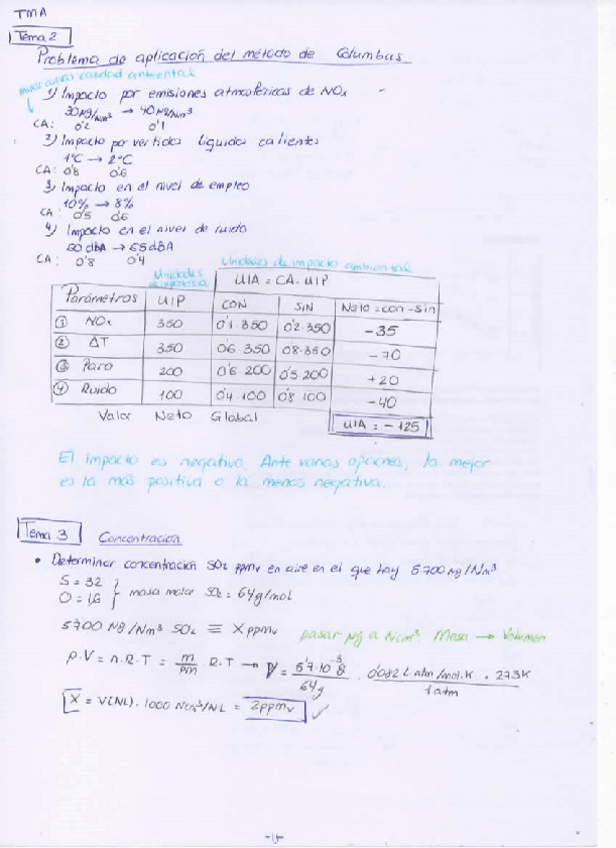 TMA
Tema 2
Problema de aplicación del método de Columbus
1) Impacto por emisiones atmosféricas de NOx
30 µg/Nm³ → 40 µg/Nm³
CA: 0'2 0'1
2) Impacto por vertidos líquidos calientes
1°C → 2°C
CA: 0'8 0'6
3) Impacto en el nivel de empleo
10% → 8%
CA: 0'5 0'6
4) Impacto en el nivel de ruido
60 dBA → 65 dBA
CA: 0'8 0'4
Unidades de impacto ambiental
Unidades de importancia
UIA = CA · UIP
Parámetros UIP CON SIN Neto = con - sin
① NOx 350 0'1·350 0'2·350 -35
② ΔT 350 0'6·350 0'8·350 -70
③ Paro 200 0'6·200 0'5·200 +20
④ Ruido 100 0'4·100 0'8·100 -40
Valor Neto Global UIA = -125
El impacto es negativo. Ante varias opciones, la mejor
es la más positiva o la menos negativa.
Tema 3 Concentración
• Determinar concentración SO₂ ppmv en aire en el que hay 5700 µg/Nm³
S = 32
O = 16 } masa molar SO₂ = 64 g/mol
5700 µg/Nm³ SO₂ ≡ X ppmv pasar µg a Ncm³. Masa → Volumen
P.V = n.R.T = m/pm R.T → V = 5'7·10⁻³ g / 64g · 0'082 L.atm/mol.K · 273K / 1 atm
X = V(NL) · 1000 Ncm³/NL = 2ppmv ✓